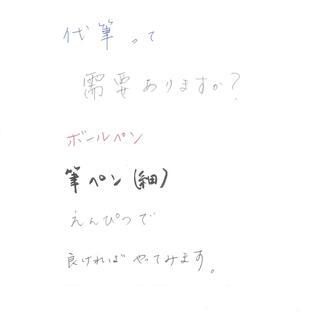 代筆って
需要ありますか?
ボールペン
筆ペン(細)
えんぴつで
良ければやってみます。